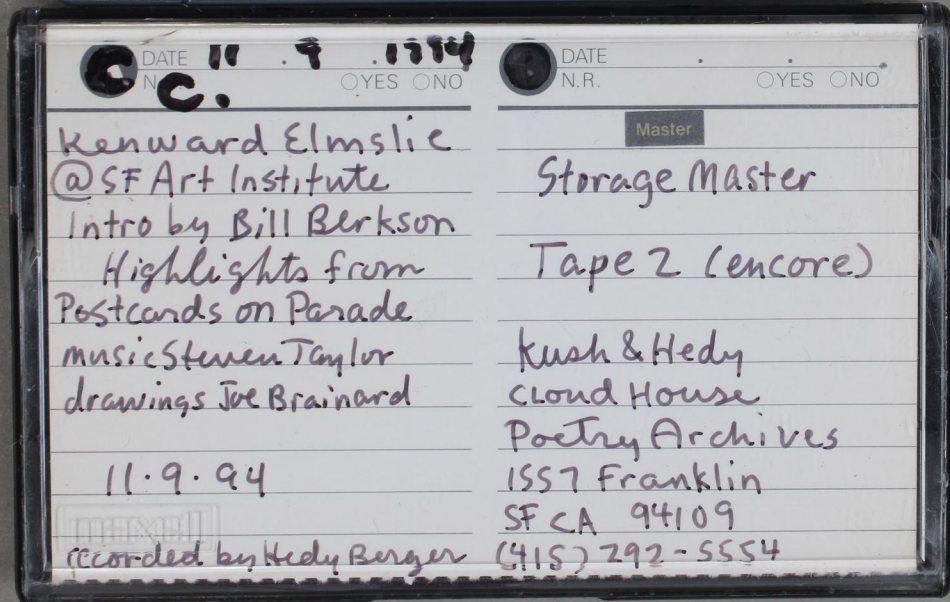 C. DATE 11 . 9 . 1994
C. YES NO
Kenward Elmslie
@ SF Art Institute
Intro by Bill Berkson
Highlights from
Postcards on Parade
music Steven Taylor
drawings Joe Brainard
11·9·94
maxell
recorded by Hedy Berger
DATE . .
N.R. YES NO
Master
Storage Master
Tape 2 (encore)
Kush & Hedy
Cloud House
Poetry Archives
1557 Franklin
SF CA 94109
(415) 292-5554